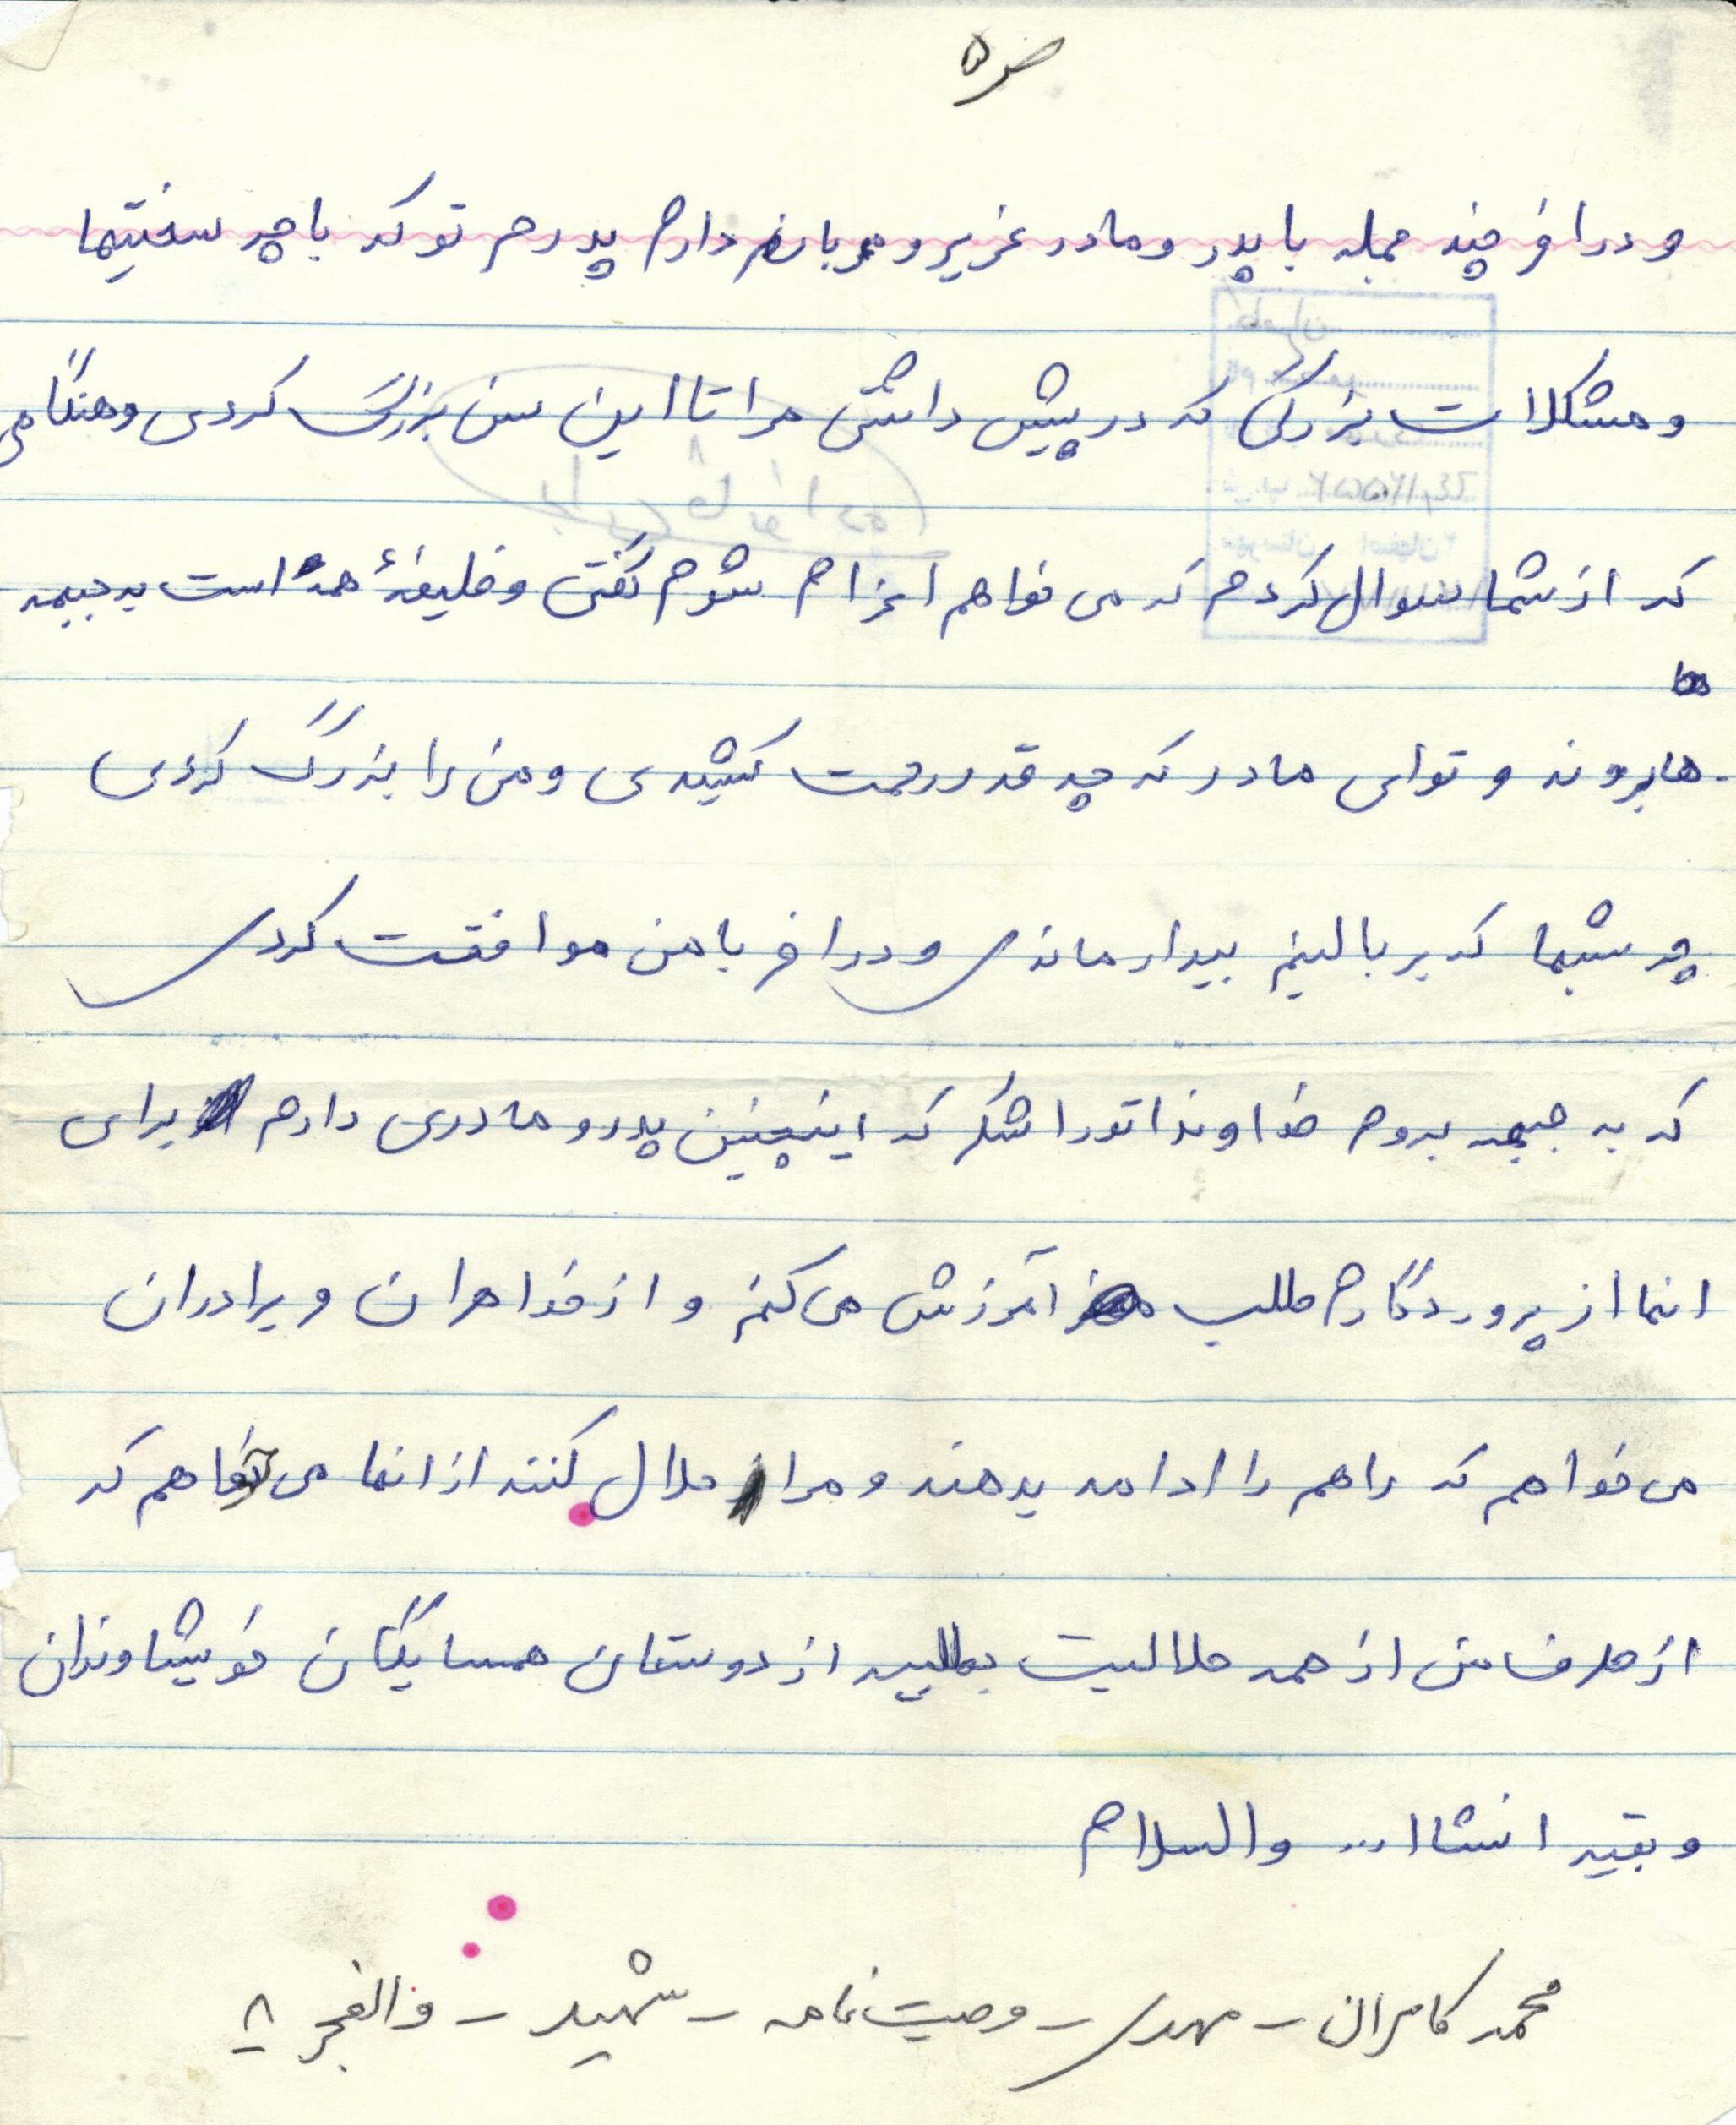 ص ۵
و در اخر چند جمله با پدر و مادر عزیز و مهربانم دارم پدرم تو که با چه سختیها
و مشکلات بزرگی که در پیش داشتی مرا تا این سن بزرگ کردی و هنگامی
که از شما سوال کردم که می خواهم اعزام شوم گفتی وظیفهٔ همه است به جبهه
ها بروند و تو ای مادر که چه قدر زحمت کشیدی و من را بزرگ کردی
چه شبها که بر بالینم بیدار ماندی و در اخر با من موافقت کردی
که به جبهه بروم خداوندا تورا شکر که اینچنین پدر و مادری دارم برای
انها از پروردگارم طلب آمرزش می کنم و از خواهران و برادران
می خواهم که راهم را ادامه بدهند و مرا حلال کنند از انها می خواهم که
از طرف من از همه حلالیت بطلبید از دوستان همسایگان خویشاوندان
و بقیه انشاا... والسلام
محمد کامران - مهدی - وصیت نامه - شهید - والفجر ۸